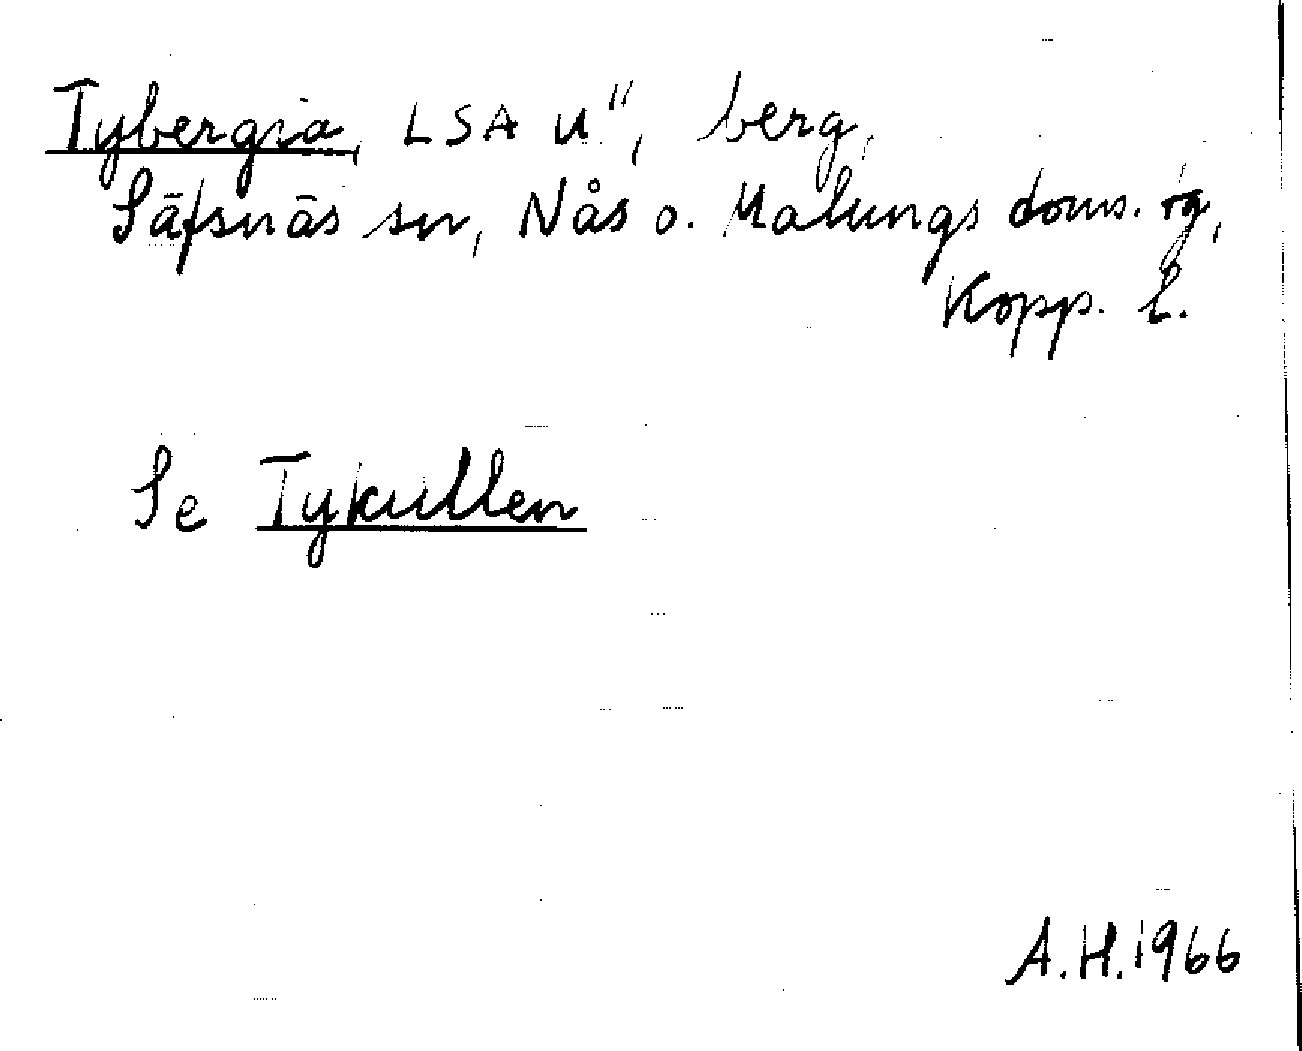 Tybergia, LSA U", berg,
Säfsnäs sn, Nås o. Malungs doms. tg,
Kopp. l.
Se Tykullen
A.H. 1966